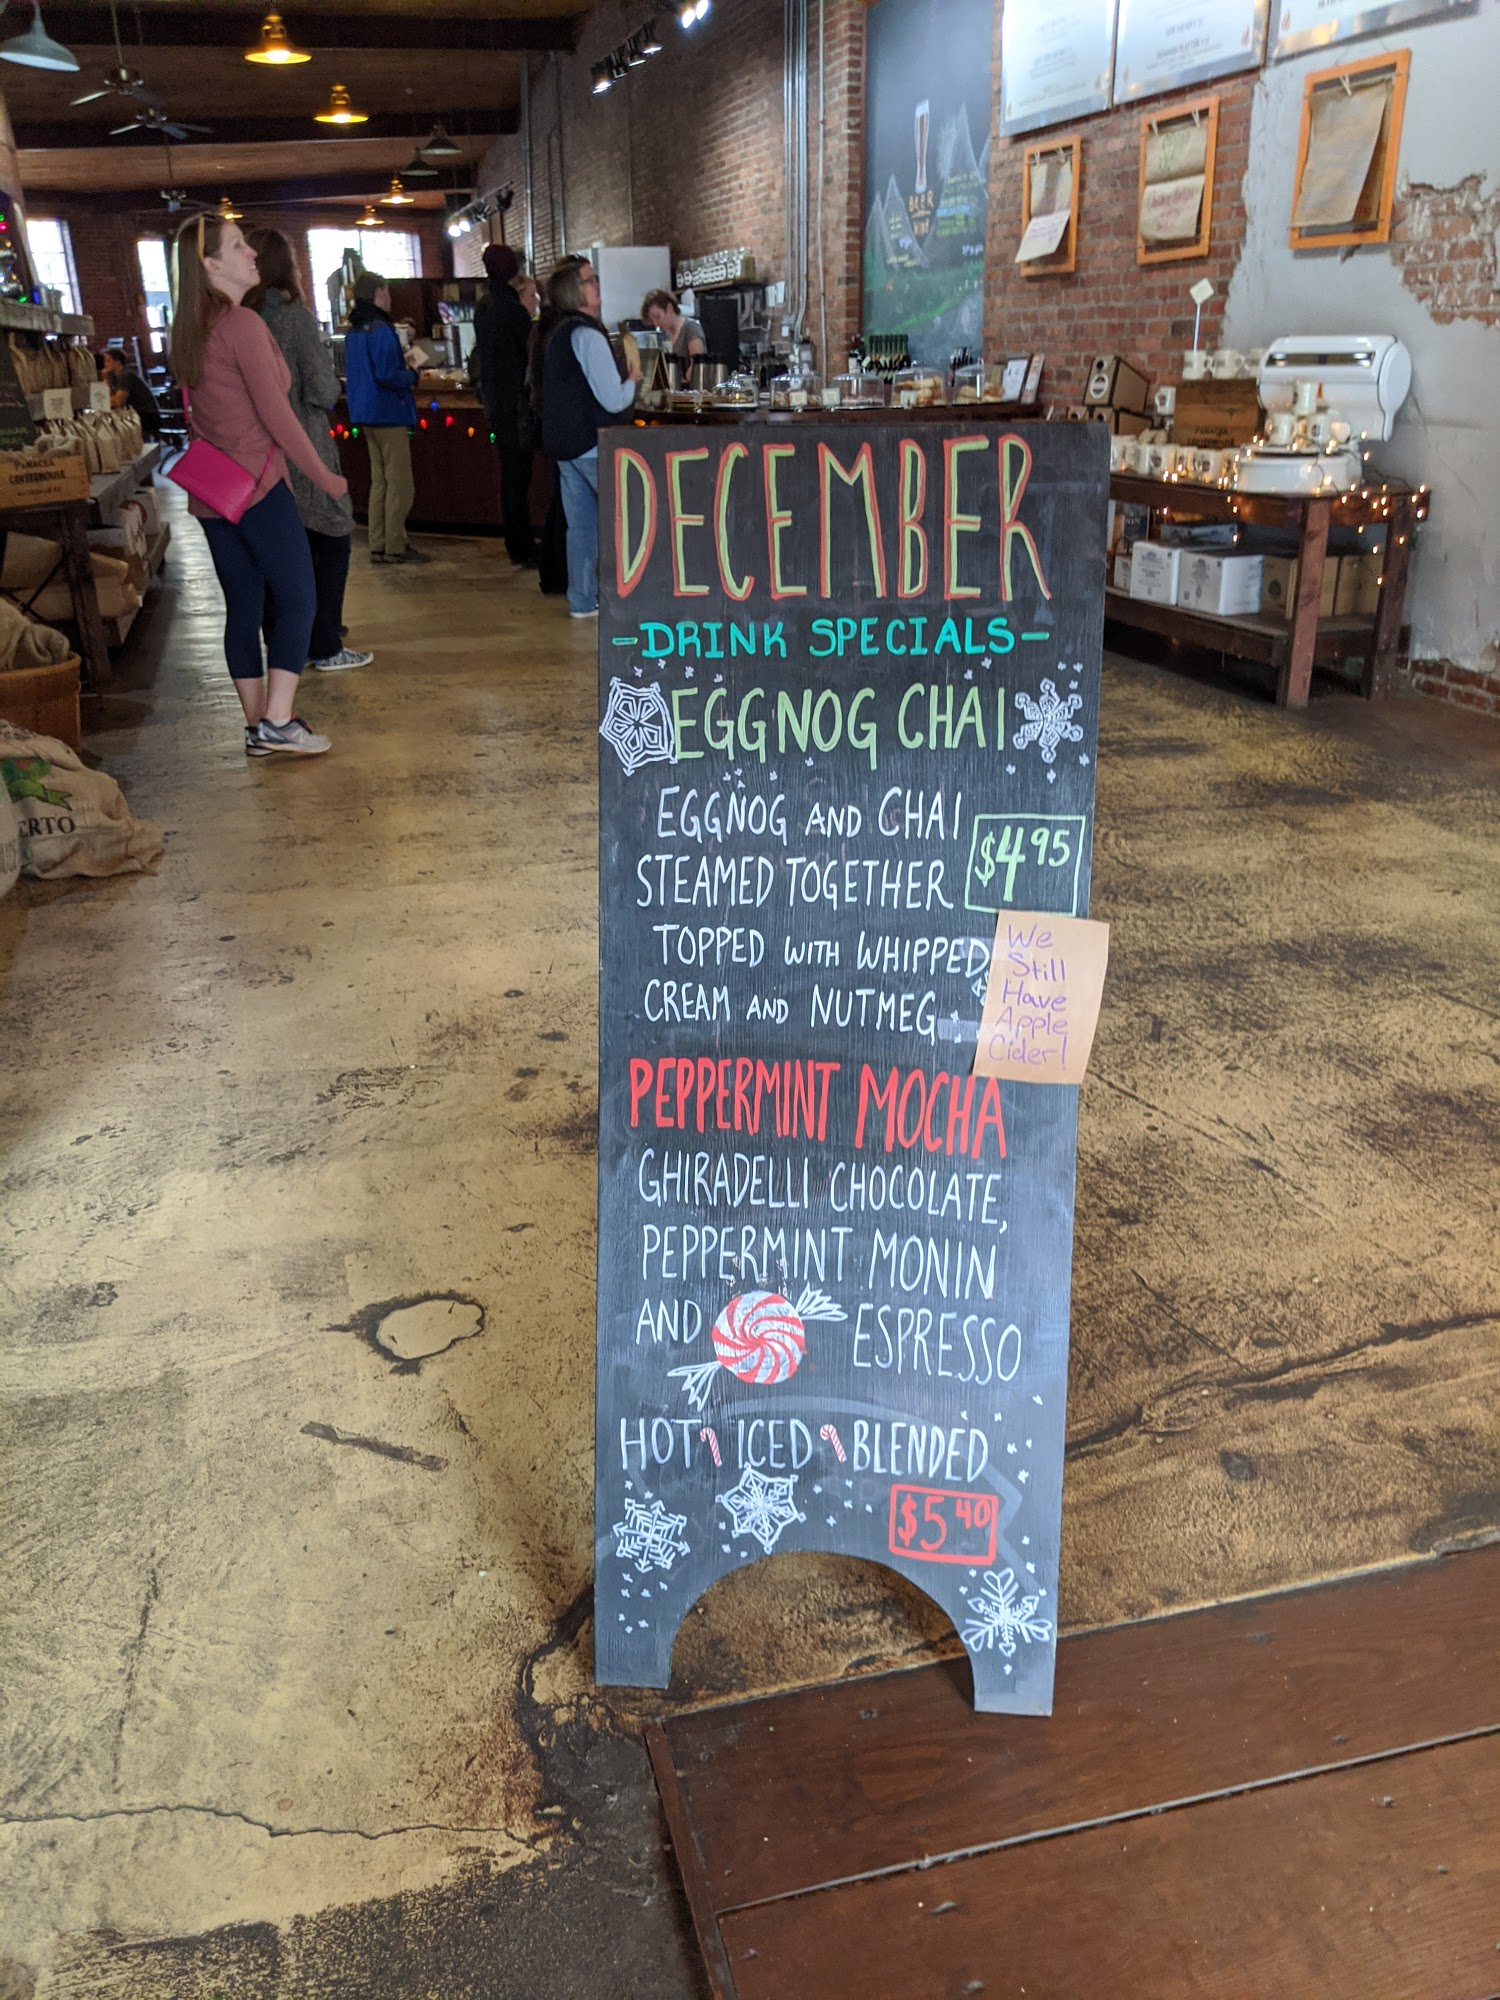 DECEMBER
-DRINK SPECIALS-
EGGNOG CHAI
EGGNOG AND CHAI
STEAMED TOGETHER
$4.95
TOPPED WITH WHIPPED
CREAM AND NUTMEG
We
Still
Have
Apple
Cider!
PEPPERMINT MOCHA
GHIRADELLI CHOCOLATE,
PEPPERMINT MONIN
AND ESPRESSO
HOT ICED BLENDED
$5.40
BEER
WINE
PANACEA
COFFEEHOUSE
PANACEA
COFFEEHOUSE
ERTO